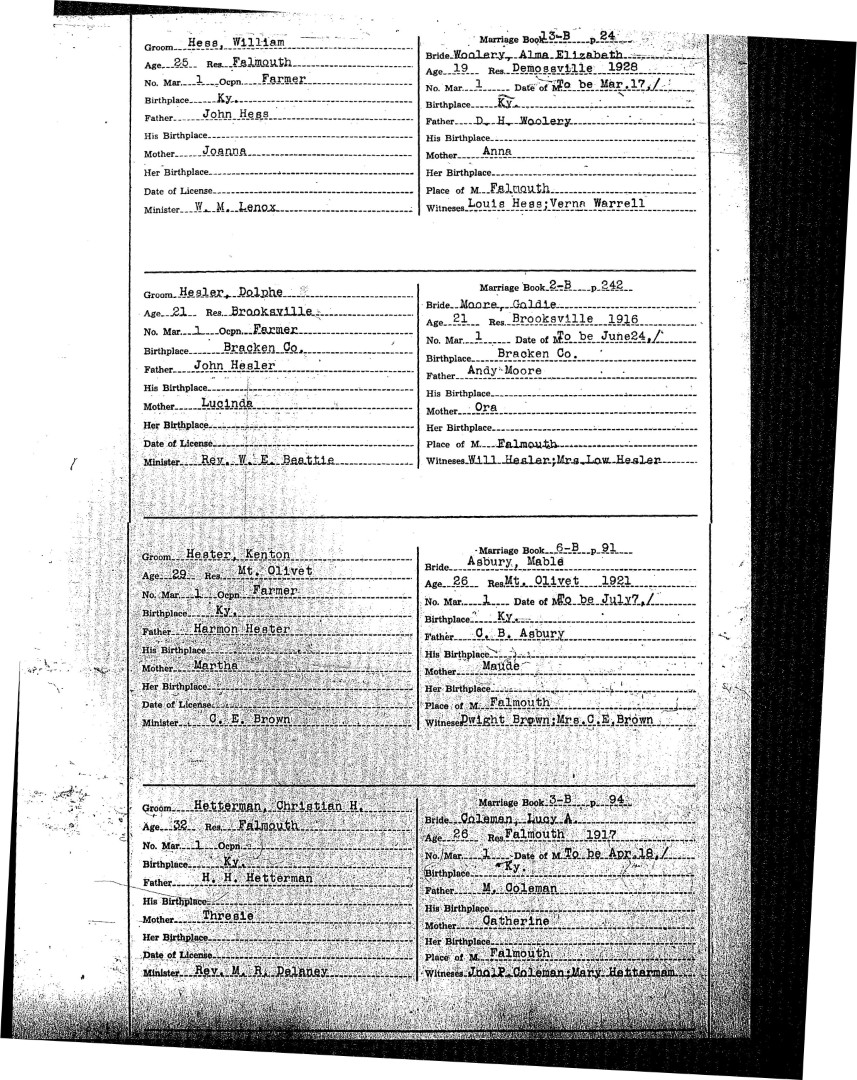 Groom Hess, William
Age 25 Res Falmouth
No. Mar. 1 Ocpn. Farmer
Birthplace Ky.
Father John Hess
His Birthplace
Mother Joanna
Her Birthplace
Date of License
Minister W. M. Lenox
Marriage Book 13-B p. 24
Bride Woolery, Alma Elizabeth
Age 19 Res Demossville 1928
No. Mar. 1 Date of M To be Mar.17,/
Birthplace Ky.
Father D. H. Woolery
His Birthplace
Mother Anna
Her Birthplace
Place of M. Falmouth
Witneses Louis Hess;Verna Warrell
Groom Hesler, Dolphe
Age 21 Res. Brooksville
No. Mar. 1 Ocpn. Farmer
Birthplace Bracken Co.
Father John Hesler
His Birthplace
Mother Lucinda
Her Birthplace
Date of License
Minister Rev. W. E. Beattie
Marriage Book 2-B p. 242
Bride Moore, Goldie
Age 21 Res Brooksville 1916
No. Mar. 1 Date of M To be June24,/
Birthplace Bracken Co.
Father Andy Moore
His Birthplace
Mother Ora
Her Birthplace
Place of M. Falmouth
Witneses Will Hesler;Mrs.Low Hesler
Groom Hester, Kenton
Age 29 Res. Mt. Olivet
No. Mar. 1 Ocpn. Farmer
Birthplace Ky.
Father Harmon Hester
His Birthplace
Mother Martha
Her Birthplace
Date of License
Minister C. E. Brown
Marriage Book 6-B p. 91
Bride Asbury, Mable
Age 26 Res Mt. Olivet 1921
No. Mar. 1 Date of M To be July7,/
Birthplace Ky.
Father C. B. Asbury
His Birthplace
Mother Maude
Her Birthplace
Place of M. Falmouth
Witneses Dwight Brown;Mrs.C.E.Brown
Groom Hetterman, Christian H.
Age 32 Res. Falmouth
No. Mar. 1 Ocpn.
Birthplace Ky.
Father H. H. Hetterman
His Birthplace
Mother Thresie
Her Birthplace
Date of License
Minister Rev. M. R. Delaney
Marriage Book 3-B p. 94
Bride Coleman, Lucy A.
Age 26 Res Falmouth 1917
No. Mar. 1 Date of M To be Apr.18,/
Birthplace Ky.
Father M. Coleman
His Birthplace
Mother Catherine
Her Birthplace
Place of M. Falmouth
Witneses JnolP.Coleman;Mary Hettermam